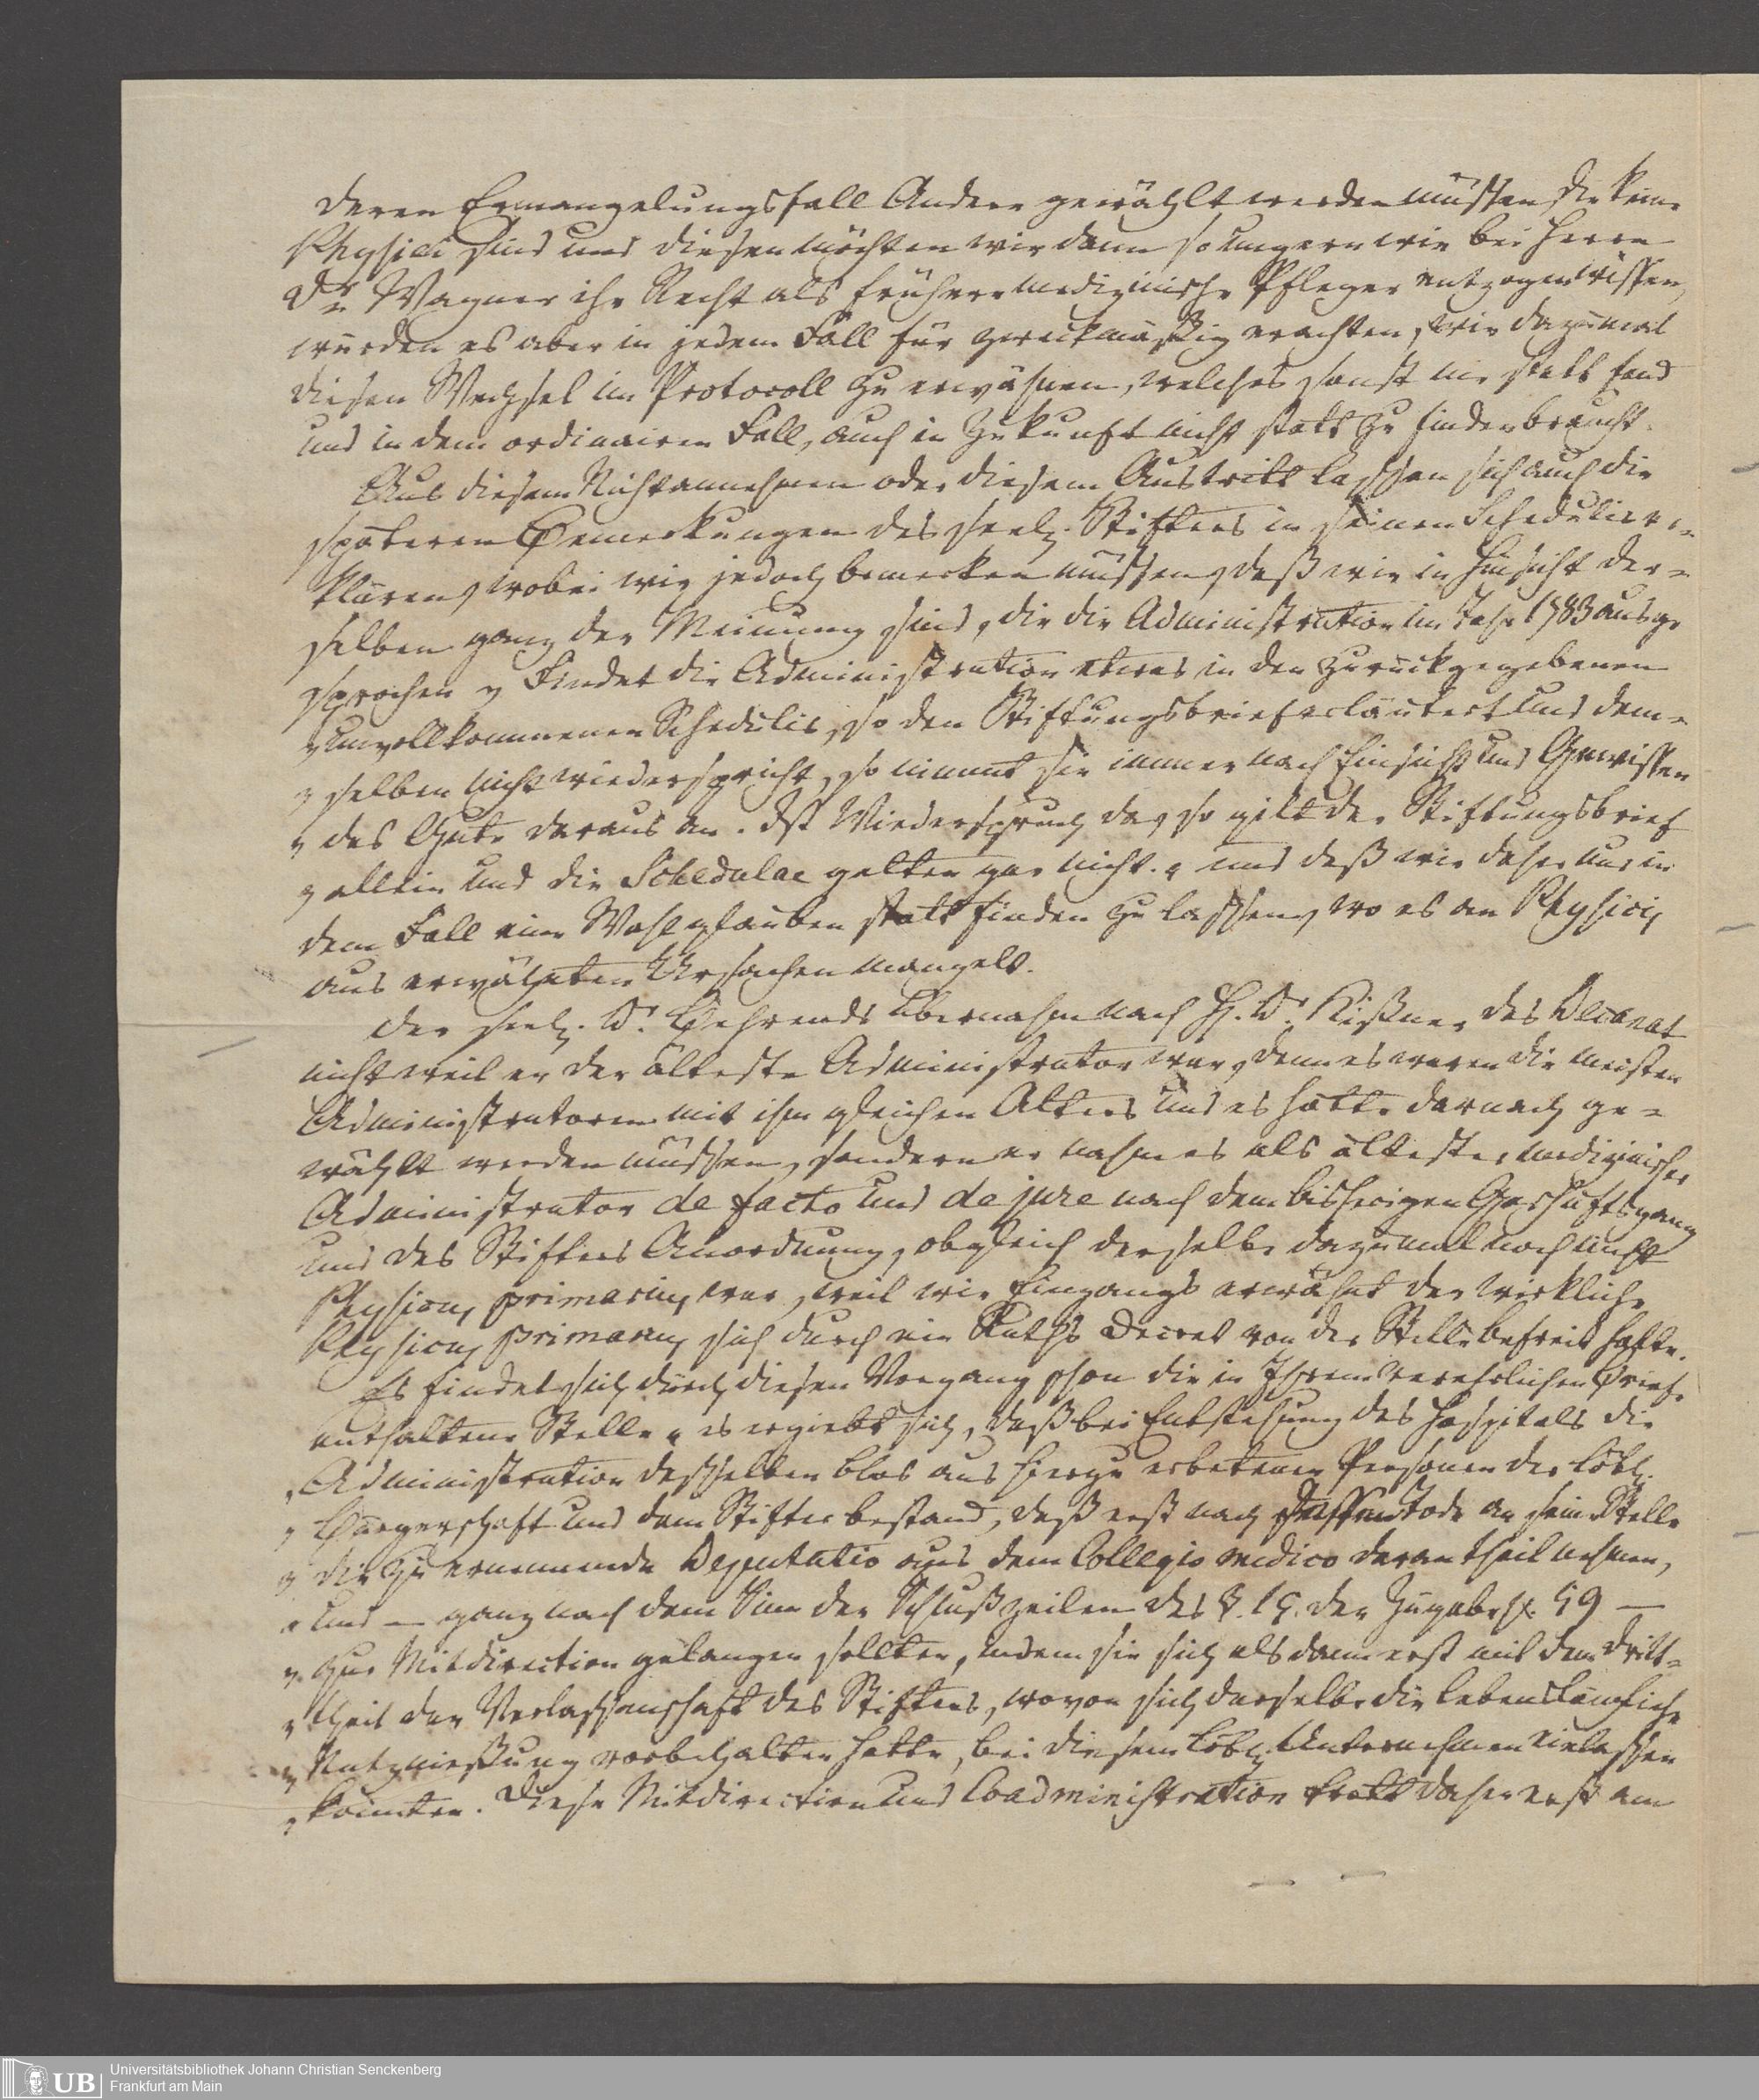 deren Ermangelungsfall Andere gewählt werden müssen die keine
Physici sind und diesen möchten wir dann so ungern wie bei Herrn
Dr. Wagner ihr Recht als frühere medizinische Pfleger entzogen wissen,
würden es aber in jedem Fall für zweckmäßig erachten, wie dazumal
diesen Wechsel im Protocoll zu erwähnen, welches sonst nie statt fand
und in dem ordinairen Fall, auch in Zukunft nicht statt zu finden braucht.
Aus diesem Nichtannehmen oder diesem Austritt lassen sich auch die
späteren Bemerkungen des seel. Stifters in seinen Schedulis er-
klären, wobei wir jedoch bemerken müssen, daß wir in Hinsicht der-
selben ganz der Meinung sind, die die Administration im Jahr 1783 ausge
sprochen „ Findet die Administration etwas in den zurückgegebenen
„ unvollkommenen Schedulis, so den Stiftungsbrief erläutert und dem-
„ selben nicht wiederspricht, so nimmt sie immer nach Einsicht und Gewissen
„ das Gute daraus an. Ist Wiederspruch da, so gilt der Stiftungsbrief
„ allein und die Schedulae gelten gar nicht. „ und daß wir daher nur in
dem Fall eine Wahl glauben statt finden zu lassen, wo es an Physicis
aus erwähnten Ursachen mangelt.
Der seel. Dr. Behrends übernahm nach H. Dr. Kißner das Decanat
nicht weil er der älteste Administrator war, denn es waren die meisten
Administratoren mit ihm gleichen Alters und es hätte darnach ge-
wählt werden müssen, sondern er nahm es als ältester medizinischer
Administrator de facto und de jure nach dem bisherigen Geschäftsgang
und des Stifters Anordnung, obgleich derselbe dazumal noch nicht
Physicus primarius war, weil wie Eingangs erwähnt der wirkliche
Physicus primarius sich durch ein Raths Decret von der Stelle befreit hatte.
Es findet sich durch diesen Vorgang schon die in Ihrem verehrlichen Briefe
enthaltene Stelle „ es ergiebt sich, daß bei Entstehung des Hospitals die
„ Administration desselben blos aus hierzu erbetenen Personen der löbl.
„ Bürgerschaft und dem Stifter bestand, daß erst nach dessen Tode an sein Stelle
„ die zu ernennende Deputatio aus dem Collegio medico daran theil nehmen,
„ und — ganz nach dem Sinn der Schlußzeilen des §. 19. der Zugabe S. 59 —
„ zur Mitdirection gelangen sollten, indem sie sich alsdann erst mit dem Dritt-
„ theil der Verlassenschaft des Stifters, wovon sich derselbe die lebenslängliche
„ Nutznießung vorbehalten hatte, bei diesem löbl. Unternehmen einlassen
„ könnten. Diese Mitdirection und Coadministration tratt daher erst am
Universitätsbibliothek Johann Christian Senckenberg
UB Frankfurt am Main